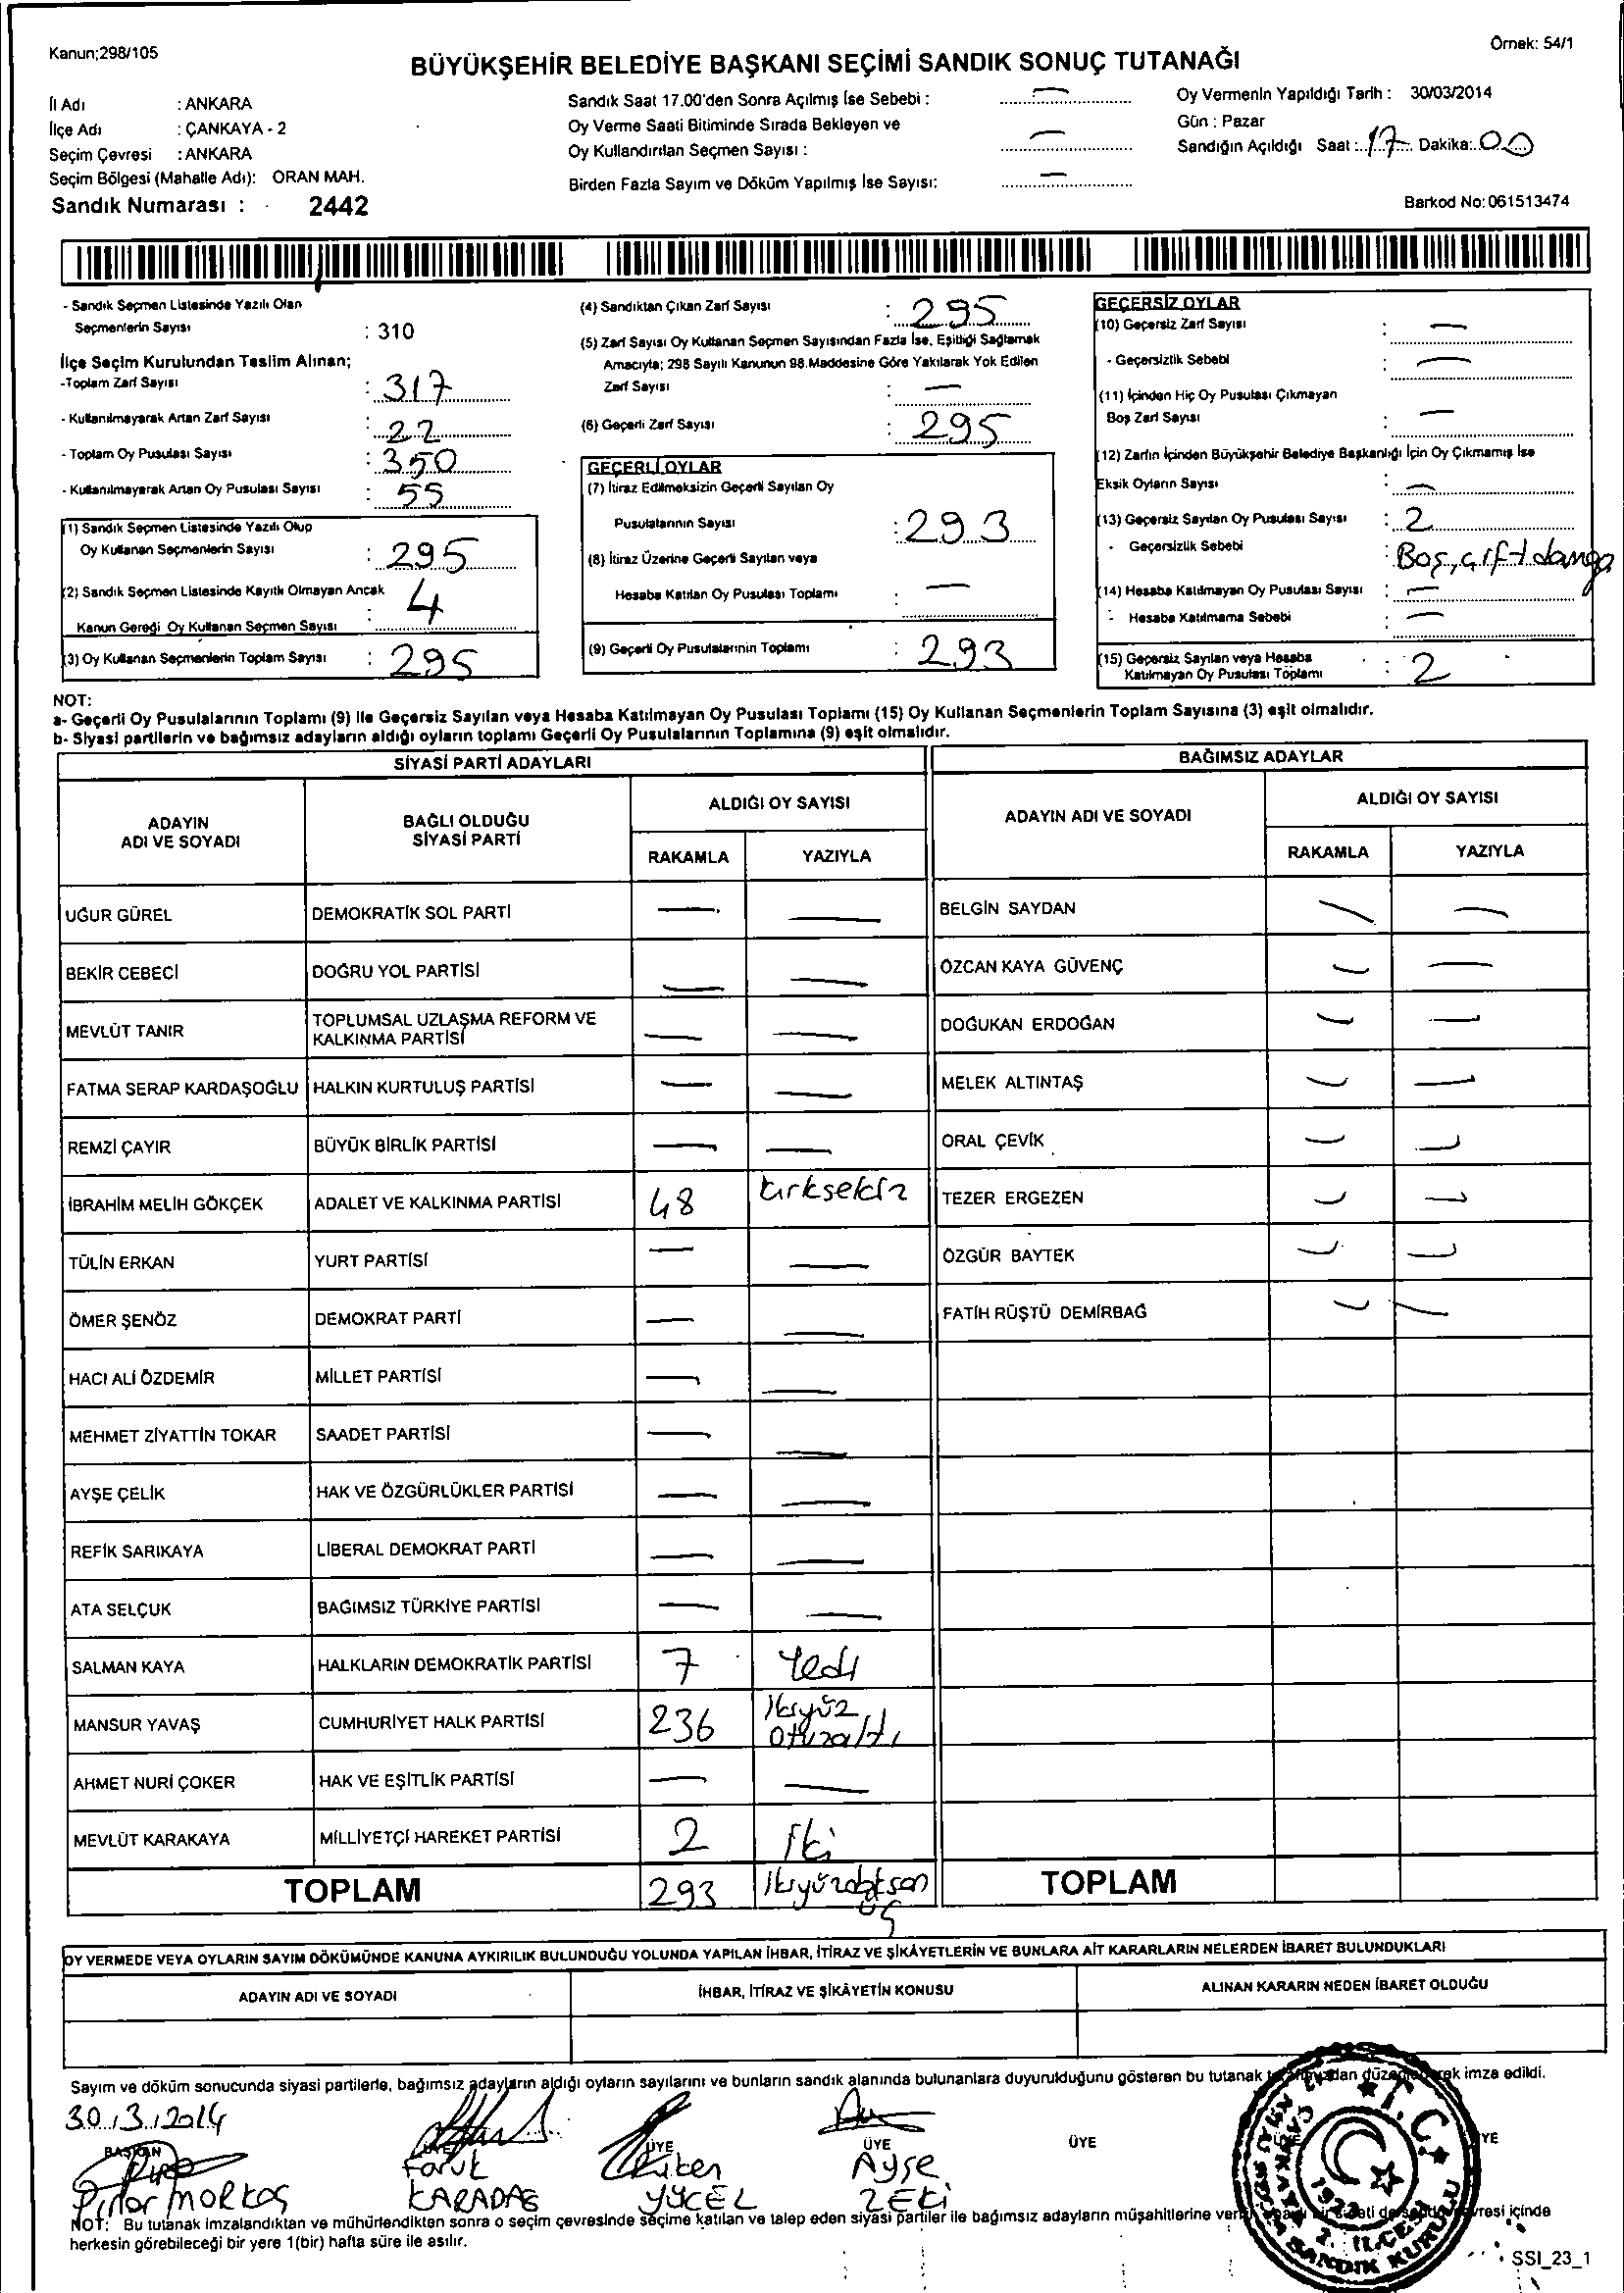 Kanun;298/105
Örnek: 54/1
BÜYÜKŞEHİR BELEDİYE BAŞKANI SEÇİMİ SANDIK SONUÇ TUTANAĞI
İl Adı : ANKARA
İlçe Adı : ÇANKAYA - 2
Seçim Çevresi : ANKARA
Seçim Bölgesi (Mahalle Adı): ORAN MAH.
Sandık Numarası : 2442
Sandık Saat 17.00'den Sonra Açılmış İse Sebebi : —
Oy Verme Saati Bitiminde Sırada Bekleyen ve
Oy Kullandırılan Seçmen Sayısı : —
Birden Fazla Sayım ve Döküm Yapılmış İse Sayısı: —
Oy Vermenin Yapıldığı Tarih : 30/03/2014
Gün : Pazar
Sandığın Açıldığı Saat : 17 Dakika: 00
Barkod No: 061513474
- Sandık Seçmen Listesinde Yazılı Olan
Seçmenlerin Sayısı : 310
İlçe Seçim Kurulundan Teslim Alınan;
-Toplam Zarf Sayısı : 317
- Kullanılmayarak Artan Zarf Sayısı : 22
- Toplam Oy Pusulası Sayısı : 350
- Kullanılmayarak Artan Oy Pusulası Sayısı : 55
(1) Sandık Seçmen Listesinde Yazılı Olup
Oy Kullanan Seçmenlerin Sayısı : 295
(2) Sandık Seçmen Listesinde Kayıtlı Olmayan Ancak
Kanun Gereği Oy Kullanan Seçmen Sayısı 4
(3) Oy Kullanan Seçmenlerin Toplam Sayısı : 295
(4) Sandıktan Çıkan Zarf Sayısı : 295
(5) Zarf Sayısı Oy Kullanan Seçmen Sayısından Fazla İse, Eşitliği Sağlamak
Amacıyla; 298 Sayılı Kanunun 98.Maddesine Göre Yakılarak Yok Edilen
Zarf Sayısı : —
(6) Geçerli Zarf Sayısı : 295
GEÇERLİ OYLAR
(7) İtiraz Edilmeksizin Geçerli Sayılan Oy
Pusulalarının Sayısı : 293
(8) İtiraz Üzerine Geçerli Sayılan veya
Hesaba Katılan Oy Pusulası Toplamı : —
(9) Geçerli Oy Pusulalarının Toplamı : 293
GEÇERSİZ OYLAR
(10) Geçersiz Zarf Sayısı : —
- Geçersizlik Sebebi : —
(11) İçinden Hiç Oy Pusulası Çıkmayan
Boş Zarf Sayısı : —
(12) Zarfın İçinden Büyükşehir Belediye Başkanlığı İçin Oy Çıkmamış İse
Eksik Oyların Sayısı : —
(13) Geçersiz Sayılan Oy Pusulası Sayısı : 2
- Geçersizlik Sebebi : Boş, çift damga
(14) Hesaba Katılmayan Oy Pusulası Sayısı : —
- Hesaba Katılmama Sebebi : —
(15) Geçersiz Sayılan veya Hesaba
Katılmayan Oy Pusulası Toplamı : 2
NOT:
a- Geçerli Oy Pusulalarının Toplamı (9) ile Geçersiz Sayılan veya Hesaba Katılmayan Oy Pusulası Toplamı (15) Oy Kullanan Seçmenlerin Toplam Sayısına (3) eşit olmalıdır.
b- Siyasi partilerin ve bağımsız adayların aldığı oyların toplamı Geçerli Oy Pusulalarının Toplamına (9) eşit olmalıdır.
SİYASİ PARTİ ADAYLARI
ADAYIN
ADI VE SOYADI
BAĞLI OLDUĞU
SİYASİ PARTİ
ALDIĞI OY SAYISI
RAKAMLA YAZIYLA
UĞUR GÜREL DEMOKRATİK SOL PARTİ — —
BEKİR CEBECİ DOĞRU YOL PARTİSİ — —
MEVLÜT TANIR TOPLUMSAL UZLAŞMA REFORM VE
KALKINMA PARTİSİ — —
FATMA SERAP KARDAŞOĞLU HALKIN KURTULUŞ PARTİSİ — —
REMZİ ÇAYIR BÜYÜK BİRLİK PARTİSİ — —
İBRAHİM MELİH GÖKÇEK ADALET VE KALKINMA PARTİSİ 48 kırksekiz
TÜLİN ERKAN YURT PARTİSİ — —
ÖMER ŞENÖZ DEMOKRAT PARTİ — —
HACI ALİ ÖZDEMİR MİLLET PARTİSİ — —
MEHMET ZİYATTİN TOKAR SAADET PARTİSİ — —
AYŞE ÇELİK HAK VE ÖZGÜRLÜKLER PARTİSİ — —
REFİK SARIKAYA LİBERAL DEMOKRAT PARTİ — —
ATA SELÇUK BAĞIMSIZ TÜRKİYE PARTİSİ — —
SALMAN KAYA HALKLARIN DEMOKRATİK PARTİSİ 7 Yedi
MANSUR YAVAŞ CUMHURİYET HALK PARTİSİ 236 İkiyüz
otuzaltı
AHMET NURİ ÇOKER HAK VE EŞİTLİK PARTİSİ — —
MEVLÜT KARAKAYA MİLLİYETÇİ HAREKET PARTİSİ 2 İki
TOPLAM 293 İkiyüzdoksan
üç
BAĞIMSIZ ADAYLAR
ADAYIN ADI VE SOYADI
ALDIĞI OY SAYISI
RAKAMLA YAZIYLA
BELGİN SAYDAN — —
ÖZCAN KAYA GÜVENÇ — —
DOĞUKAN ERDOĞAN — —
MELEK ALTINTAŞ — —
ORAL ÇEVİK — —
TEZER ERGEZEN — —
ÖZGÜR BAYTEK — —
FATİH RÜŞTÜ DEMİRBAĞ — —
TOPLAM
OY VERMEDE VEYA OYLARIN SAYIM DÖKÜMÜNDE KANUNA AYKIRILIK BULUNDUĞU YOLUNDA YAPILAN İHBAR, İTİRAZ VE ŞİKÂYETLERİN VE BUNLARA AİT KARARLARIN NELERDEN İBARET BULUNDUKLARI
ADAYIN ADI VE SOYADI
İHBAR, İTİRAZ VE ŞİKÂYETİN KONUSU
ALINAN KARARIN NEDEN İBARET OLDUĞU
Sayım ve döküm sonucunda siyasi partilerle, bağımsız adayların aldığı oyların sayılarını ve bunların sandık alanında bulunanlara duyurulduğunu gösteren bu tutanak imza edildi.
30/3/2014
BAŞKAN ÜYE ÜYE ÜYE ÜYE
Pınar MORKOÇ
Faruk
KARADAĞ
YÜCEL
Ayşe
ZEKİ
T.C.
1923
2. İLÇE
SANDIK KURULU
NOT: Bu tutanak imzalandıktan ve mühürlendikten sonra o seçim çevresinde seçime katılan ve talep eden siyasi partiler ile bağımsız adayların müşahitlerine içinde
herkesin görebileceği bir yere 1(bir) hafta süre ile asılır.
SSI_23_1